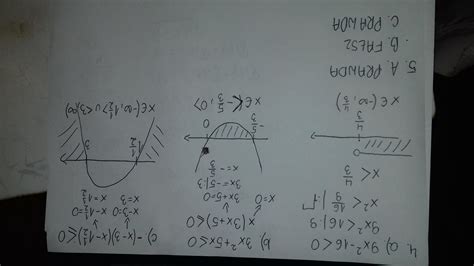 4. a) 9x²-16<0
9x²<16 |:9
x² < 16/9 |√
x < 4/3
4/3
x∈(-∞, 4/3)
b) 3x²+5x≤0
x(3x+5)≤0
x=0 3x+5=0
3x=-5|:3
x=-5/3
-5/3 0
x∈<-5/3, 0>
c) -(x-3)(x-1/2)≤0
x-3=0 x-1/2=0
x=3 x=1/2
1/2 3
x∈(-∞, 1/2>∪<3,∞)
5. A. PRAWDA
B. FAŁSZ
C. PRAWDA